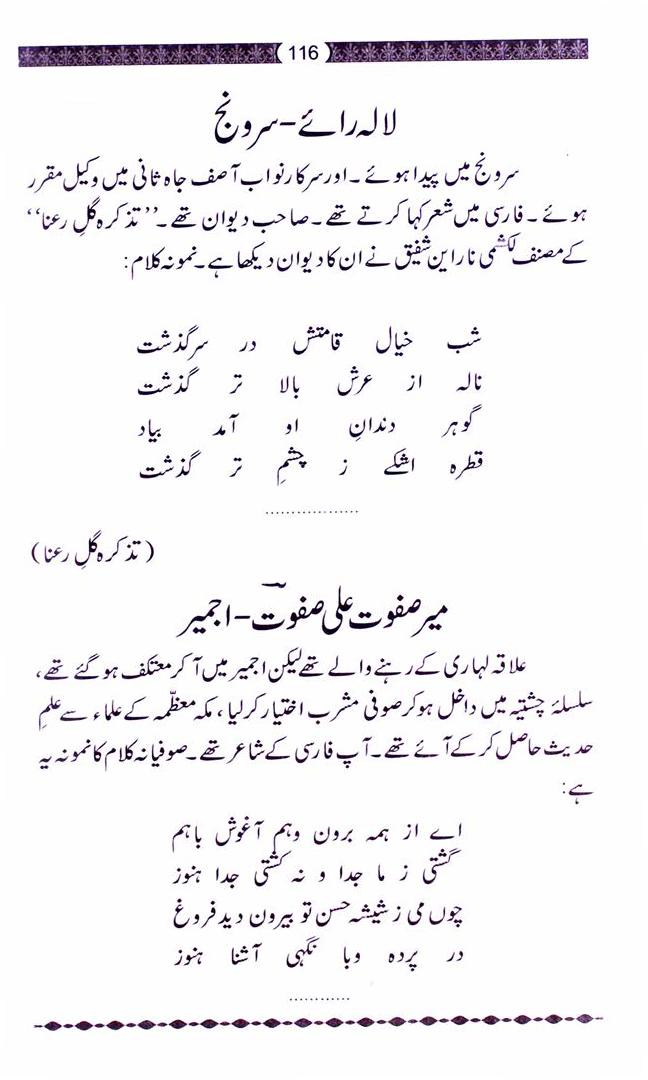 116
لالہ رائے - سرونج
سرونج میں پیدا ہوئے۔ اور سرکار نواب آصف جاہ ثانی میں وکیل مقرر
ہوئے۔ فارسی میں شعر کہا کرتے تھے۔ صاحب دیوان تھے۔ ’’تذکرہ گلِ رعنا‘‘
کے مصنف لکشمی نارائن شفیق نے ان کا دیوان دیکھا ہے۔ نمونہ کلام:
شب خیال قامتش در سرگذشت
نالہ از عرش بالا تر گذشت
گوہر دندانِ او آمد بیاد
قطرہ اشکے ز چشمِ تر گذشت
..................
(تذکرہ گلِ رعنا)
میر صفوت علی صفوتؔ - اجمیر
علاقہ لہاری کے رہنے والے تھے لیکن اجمیر میں آکر معتکف ہوگئے تھے،
سلسلۂ چشتیہ میں داخل ہوکر صوفی مشرب اختیار کرلیا، مکہ معظّمہ کے علماء سے علمِ
حدیث حاصل کرکے آئے تھے۔ آپ فارسی کے شاعر تھے۔ صوفیانہ کلام کا نمونہ یہ
ہے:
اے از ہمہ برون وہم آغوش باہم
گشتی ز ما جدا و نہ گشتی جدا ہنوز
چوں می ز شیشہ حسن تو بیرون دید فروغ
در پردہ وبا نگہی آشنا ہنوز
............